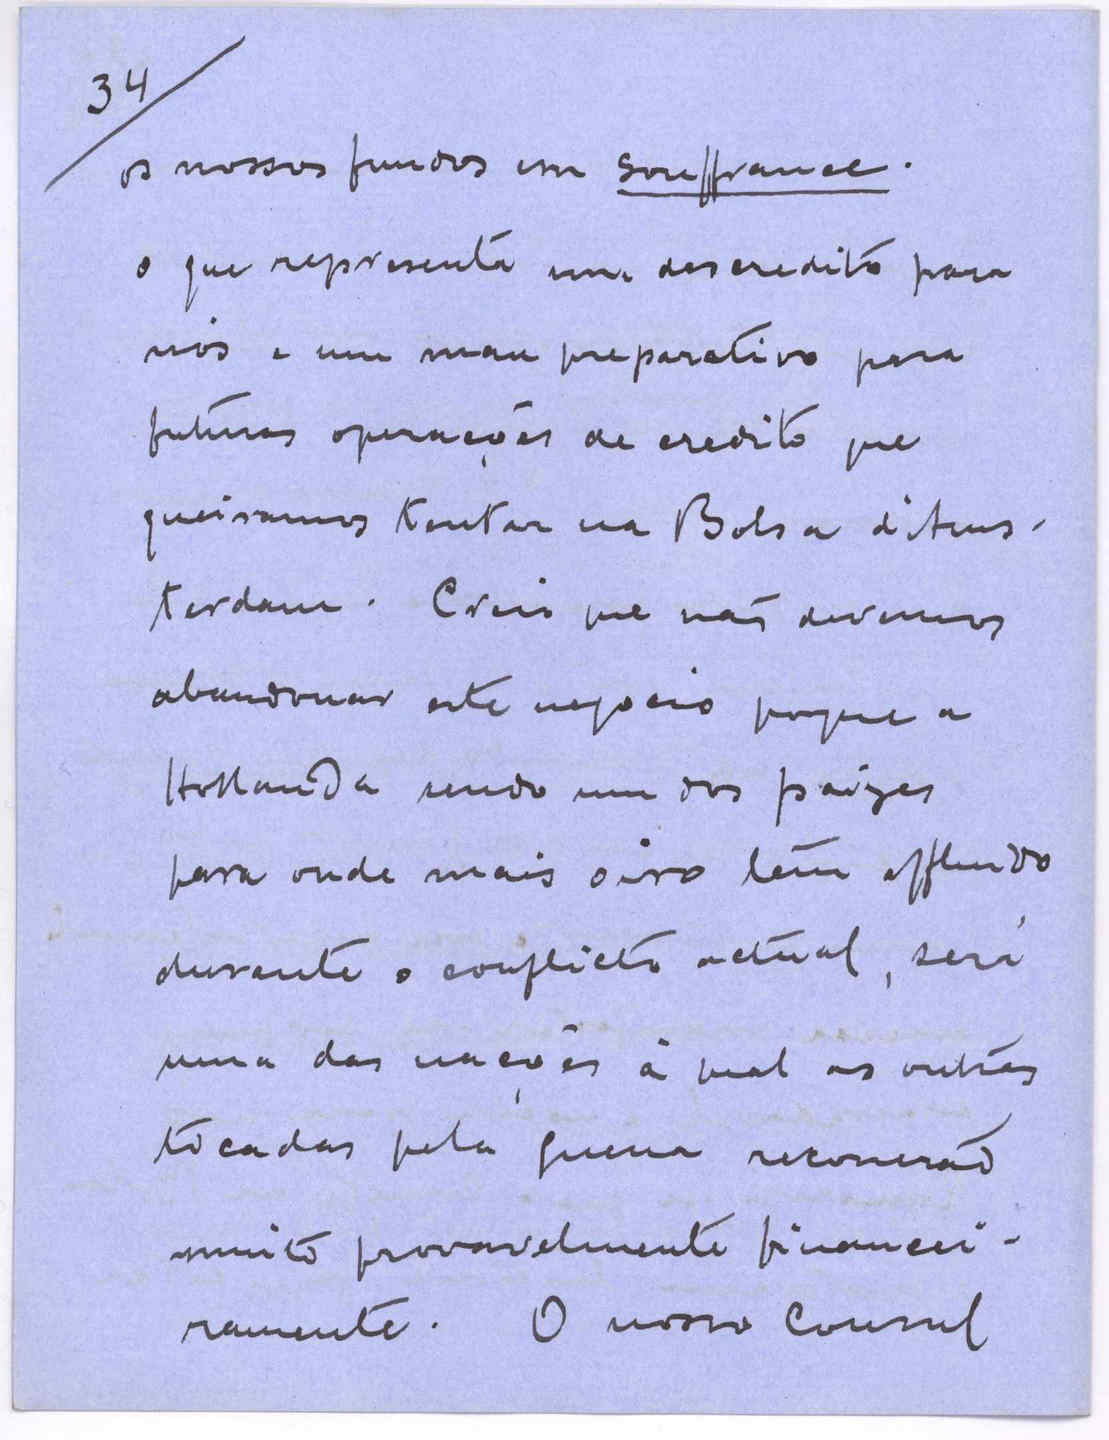 34
os nossos fundos em souffrance.
o que representa um descredito para
nós e um mau preparativo para
futuras operações de credito que
queiramos tentar na Bolsa d'Ams-
terdam. Creio que não devemos
abandonar este negocio porque a
Hollanda sendo um dos paizes
para onde mais oiro tem affluido
durante o conflicto actual, será
uma das nações á qual as outras
tocadas pela guerra recorrerão
muito provavelmente financei-
ramente. O nosso Consul